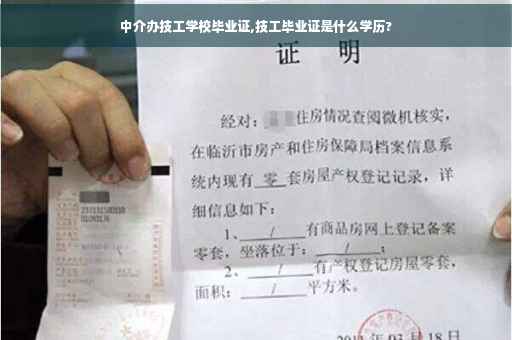 中介办技工学校毕业证,技工毕业证是什么学历?
证 明
经对: 住房情况查阅微机核实,
在临沂市房产和住房保障局档案信息系
统内现有 零 套房屋产权登记记录, 详
细信息如下:
1、 / 有商品房网上登记备案
零套, 坐落位于: / ;
2、 / 有产权登记房屋零套,
面积: / 平方米。
03 月 18 日